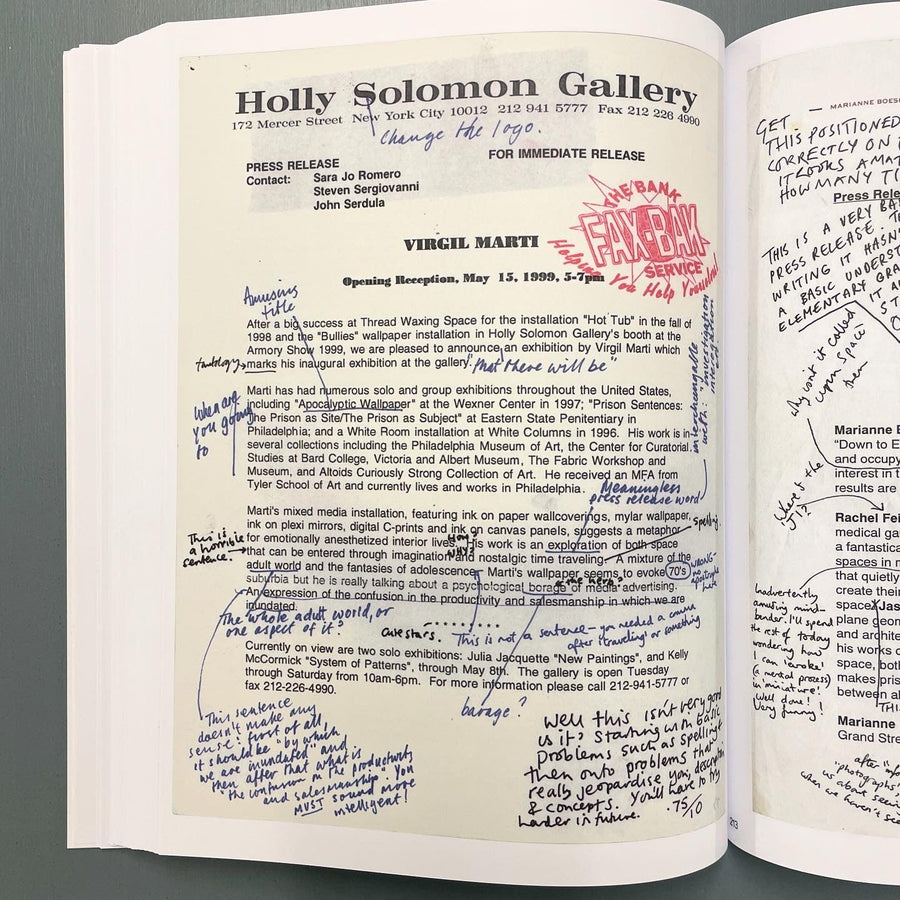 Holly Solomon Gallery
172 Mercer Street New York City 10012 212 941 5777 Fax 212 226 4990
change the logo.
PRESS RELEASE
FOR IMMEDIATE RELEASE
Contact: Sara Jo Romero
Steven Sergiovanni
John Serdula
THE BANK
FAX-BAK
SERVICE
Helping You Help Yourselves!
VIRGIL MARTI
Opening Reception, May 15, 1999, 5-7pm
Amusing
title
After a big success at Thread Waxing Space for the installation "Hot Tub" in the fall of
1998 and the "Bullies" wallpaper installation in Holly Solomon Gallery's booth at the
Armory Show 1999, we are pleased to announce an exhibition by Virgil Marti which
marks his inaugural exhibition at the gallery.
tautology
"that there will be"
interchangeable
with: "investigation
Marti has had numerous solo and group exhibitions throughout the United States,
including "Apocalyptic Wallpaper" at the Wexner Center in 1997; "Prison Sentences:
The Prison as Site/The Prison as Subject" at Eastern State Penitentiary in
Philadelphia; and a White Room installation at White Columns in 1996. His work is in
several collections including the Philadelphia Museum of Art, the Center for Curatorial
Studies at Bard College, Victoria and Albert Museum, The Fabric Workshop and
Museum, and Altoids Curiously Strong Collection of Art. He received an MFA from
Tyler School of Art and currently lives and works in Philadelphia.
When are
you going
to
Meaningless
press release word
Marti's mixed media installation, featuring ink on paper wallcoverings, mylar wallpaper,
ink on plexi mirrors, digital C-prints and ink on canvas panels, suggests a metaphor
for emotionally anesthetized interior lives. His work is an exploration of both space
that can be entered through imagination and nostalgic time traveling. A mixture of the
adult world and the fantasies of adolescence Marti's wallpaper seems to evoke 70's
suburbia but he is really talking about a psychological borage of media advertising.
An expression of the confusion in the productivity and salesmanship in which we are
inundated.
This is
a horrible
sentence.
HOW?
WHY?
spelling.
WRONG -
no
apostrophe
here
the herb?
the whole adult world, or
one aspect of it?
awestars.
This is not a sentence - you needed a comma
after 'traveling' or something
Currently on view are two solo exhibitions: Julia Jacquette "New Paintings", and Kelly
McCormick "System of Patterns", through May 8th. The gallery is open Tuesday
through Saturday from 10am-6pm. For more information please call 212-941-5777 or
fax 212-226-4990.
barage?
This sentence
doesn't make any
sense: first of all,
it should be "by which
we are inundated" and
then after that what is
"the confusion in the productivity
and salesmanship?" You
MUST sound more
intelligent!
Well this isn't very good
is it? Starting with basic
problems such as spelling &
then onto problems that
really jeopardise your descriptions
& concepts. You'll have to try
harder in future. .75/10
213
MARIANNE BOES
GET
THIS POSITIONED
CORRECTLY ON
IT LOOKS AMAT
HOW MANY TI
Press Rele
THIS IS A VERY BA
PRESS RELEASE. TH
WRITING IT HASN'
A BASIC UNDERST
ELEMENTARY GRA
Why isn't it called
'upon Space'
then
Marianne B
"Down to E
and occupy
interest in t
results are
Where's the
Rachel Fei
medical ga
a fantastica
spaces in m
that quietly
create their
space. "Jas
plane geom
and archite
his works o
space, both
makes pris
between al
Inadvertently
amusing mind-
bender. I'll spend
the rest of today
wondering how
I can 'evoke'
(a mental process)
in 'miniature'!
Well done!!
Very funny!
Marianne
Grand Stre
after "info
"photographs"
us about seein
when we haven't see